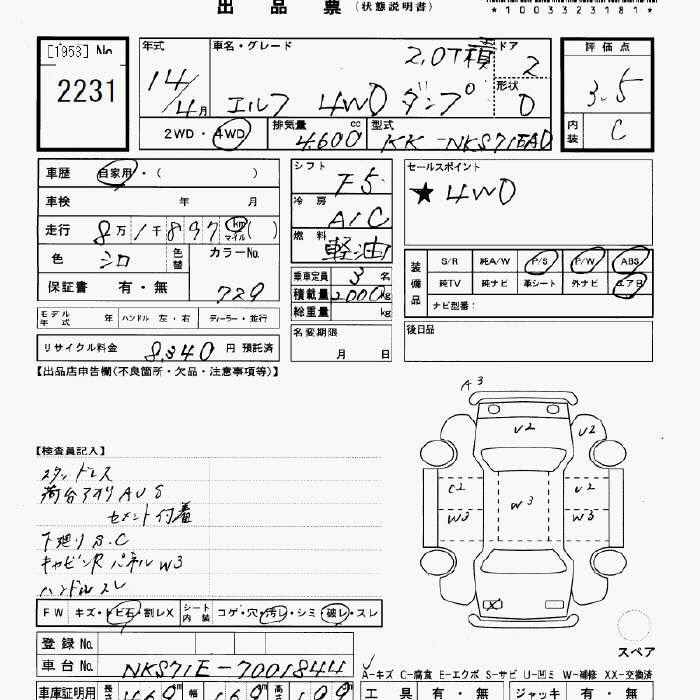 出 品 票 (状態説明書)
*1003323181*
[1953] No
2231
年式
14/4月
車名・グレード
2.0T積
エルフ 4WD ダンプ
ドア
2
形状
D
評価点
3.5
内装
C
2WD・4WD
排気量
4,600 cc
型式
KK-NKS71EAD
車歴 自家用・( )
車検 年 月
走行 8万1千897 km マイル ( )
色 シロ 色替 カラーNo.
729
保証書 有・無
モデル年式 年 ハンドル 左・右 ディーラー・並行
リサイクル料金 8,340 円 預託済
シフト
F5
冷房
A/C
燃料
軽油
乗車定員 3 名
積載量 2000 kg
総重量 kg
名変期限
月 日
セールスポイント
★4WD
装備品
S/R 純A/W P/S P/W ABS
純TV 純ナビ 革シート 外ナビ エアB
ナビ型番:
後日品
【出品店申告欄(不良箇所・欠品・注意事項等)】
【検査員記入】
スタッドレス
荷台アオリAUS
セメント付着
下廻りS.C
キャビンRパネルW3
ハンドルスレ
A3
U2
U2
C2
W3
W3
U2
W3
X
スペア
FW キズ・トビ石・割レX シート内装 コゲ・穴・汚レ・シミ・破レ・スレ
登録 No.
車台 No. NKS71E-7001844
A-キズ C-腐食 E-エクボ S-サビ U-凹ミ W-補修 XX-交換済
車庫証明用 長さ 469 幅 169 高さ 199
工具 有・無 ジャッキ 有・無